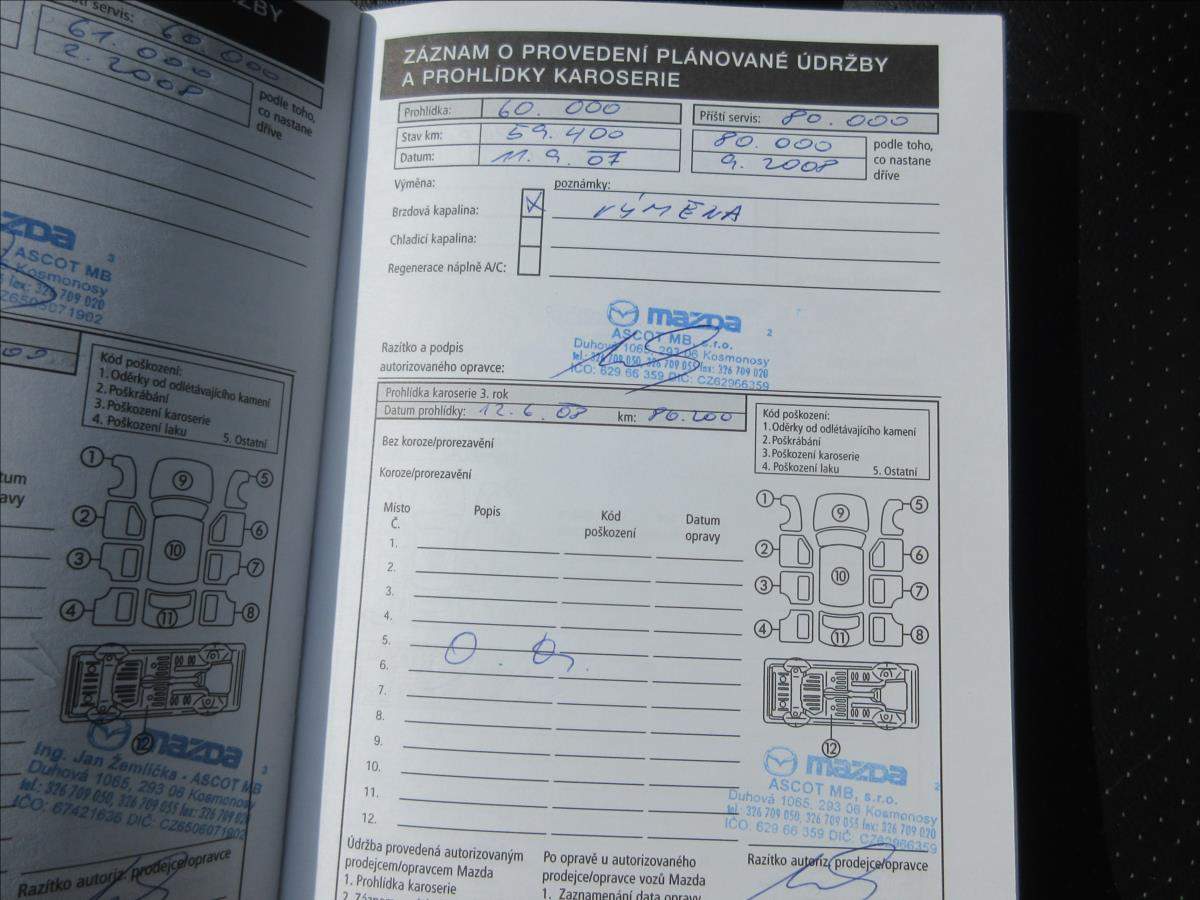 ŽBY
ští servis: 60.000
61.000
2.2008
podle toho,
co nastane
dříve
mazda
3
- ASCOT MB
Kosmonosy
fax: 326 709 020
CZ6506071902
Kód poškození:
1. Oděrky od odlétávajícího kamení
2. Poškrábání
3. Poškození karoserie
4. Poškození laku 5. Ostatní
tum
avy
1 9 5
2 6
10
3 7
4 11 8
12
mazda
3
Ing. Jan Žemlička - ASCOT MB
Duhová 1065, 293 06 Kosmonosy
tel.: 326 709 050, 326 709 055 fax: 326 709 020
IČO: 67421636 DIČ: CZ6506071902
Razítko autoriz. prodejce/opravce
ZÁZNAM O PROVEDENÍ PLÁNOVANÉ ÚDRŽBY
A PROHLÍDKY KAROSERIE
Prohlídka: 60.000 Příští servis: 80.000
Stav km: 59.400 80.000 podle toho,
Datum: 11.9.07 9.2008 co nastane
dříve
Výměna: poznámky:
Brzdová kapalina: X VÝMĚNA
Chladicí kapalina:
Regenerace náplně A/C:
mazda
2
ASCOT MB, s.r.o.
Duhová 1065, 293 06 Kosmonosy
tel.: 326 709 050, 326 709 055 fax: 326 709 020
IČO: 629 66 359 DIČ: CZ62966359
Razítko a podpis
autorizovaného opravce:
Prohlídka karoserie 3. rok
Datum prohlídky: 12.6.08 km: 80.200
Bez koroze/prorezavění
Koroze/prorezavění
Kód poškození:
1. Oděrky od odlétávajícího kamení
2. Poškrábání
3. Poškození karoserie
4. Poškození laku 5. Ostatní
Místo Popis Kód Datum
Č. poškození opravy
1.
2.
3.
4.
5.
6.
7.
8.
9.
10.
11.
12.
1 9 5
2 6
10
3 7
4 11 8
12
mazda
2
ASCOT MB, s.r.o.
Duhová 1065, 293 06 Kosmonosy
tel.: 326 709 050, 326 709 055 fax: 326 709 020
IČO: 629 66 359 DIČ: CZ62966359
Razítko autoriz. prodejce/opravce
Údržba provedená autorizovaným
prodejcem/opravcem Mazda
1. Prohlídka karoserie
Po opravě u autorizovaného
prodejce/opravce vozů Mazda
1. Zaznamenání data opravy